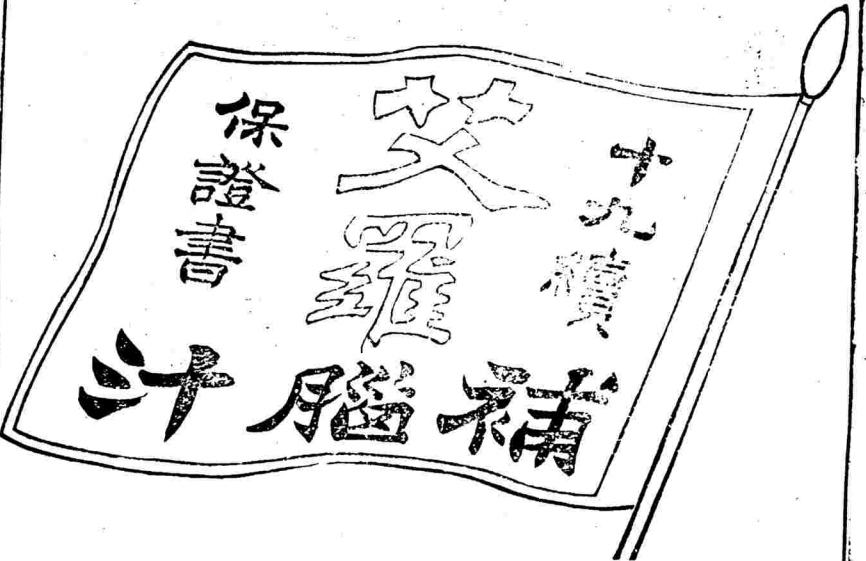 十九續
艾羅
保證書
補腦汁